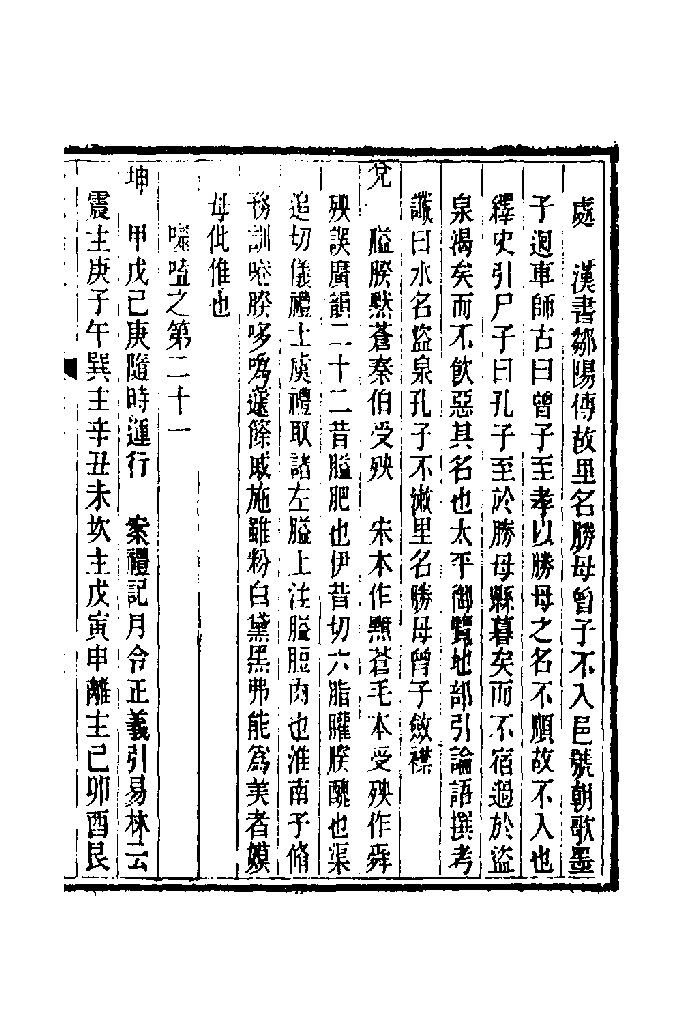 處　漢書鄒陽傳故里名勝母曾子不入邑號朝歌墨
子迴車師古曰曾子至孝以勝母之名不順故不入也
繹史引尸子曰孔子至於勝母縣暮矣而不宿過於盜
泉渴矣而不飲惡其名也太平御覽地部引論語撰考
讖曰水名盜泉孔子不漱里名勝母曾子斂襟
兌　膉䐨黙蒼秦伯受殃　宋本作黙蒼毛本受殃作舜
殃誤廣韻二十二昔膉肥也伊昔切六脂䑏䐨醜也渠
追切儀禮士虞禮取諸左膉上注膉脰肉也淮南子脩
務訓啳䐨哆噅籧篨戚施雖粉白黛黑弗能爲美者嫫
母仳倠也
噬嗑之第二十一
坤　甲戊己庚隨時運行　案禮記月令正義引易林云
震主庚子午巽主辛丑未坎主戊寅申離主己卯酉艮